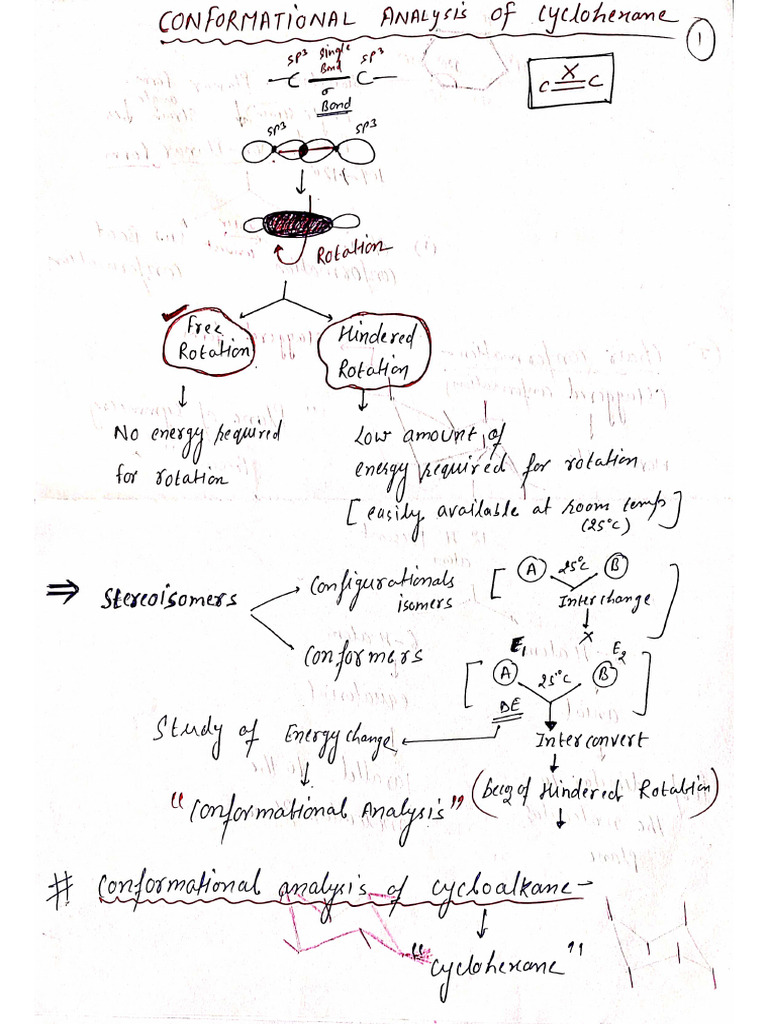 CONFORMATIONAL ANALYSIS OF Cyclohexane
1
SP3 Single Bond SP3
– C — C –
σ
Bond
C X C
SP3 SP3
Rotation
Free Rotation
Hindered Rotation
No energy required
for rotation
Low amount of
energy required for rotation
[easily available at room temp]
(25°C)
⇒ Stereoisomers
Configurationals
isomers
A 25°C B
Interchange
X
Conformers
E1 E2
A 25°C B
DE
Interconvert
Study of Energy change
(becz of Hindered Rotation)
"Conformational Analysis"
# Conformational analysis of cycloalkane-
"cyclohexane"